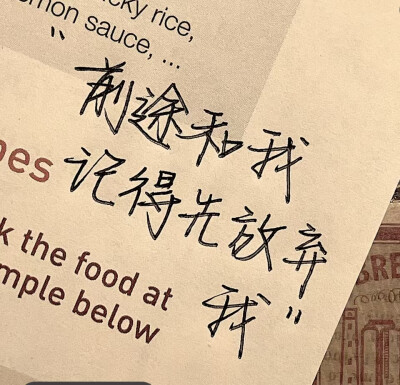 ky rice,
mon sauce, ...
"前途和我
记得先放弃
我"
es
k the food at
mple below
BRE